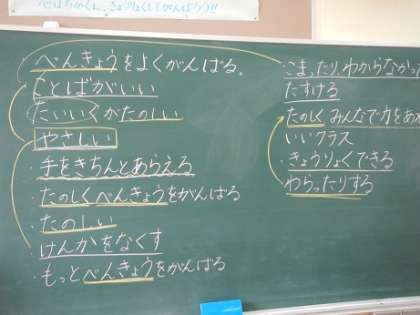 べんきょうをよくがんばる。
ことばがいい
たいいくがたのしい
やさしい
・手をきちんとあらえる
・たのしくべんきょうをがんばる
・たのしい
けんかをなくす
・もっとべんきょうをがんばる
こまったり、わからなかっ
たすける
たのしくみんなで力をあわ
いいクラス
・きょうりょくできる
わらったりする